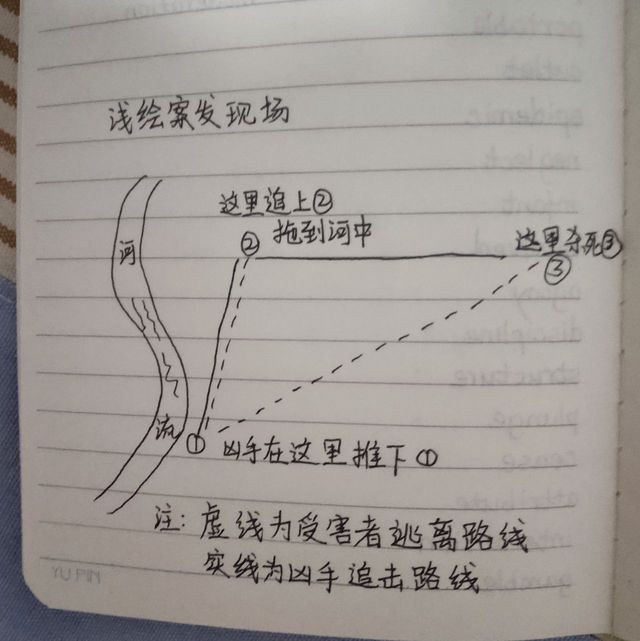 浅绘案发现场
这里追上②
拖到河中
②
这里杀死③
③
河
流
①
凶手在这里推下①
注：虚线为受害者逃离路线
实线为凶手追击路线
YU PIN